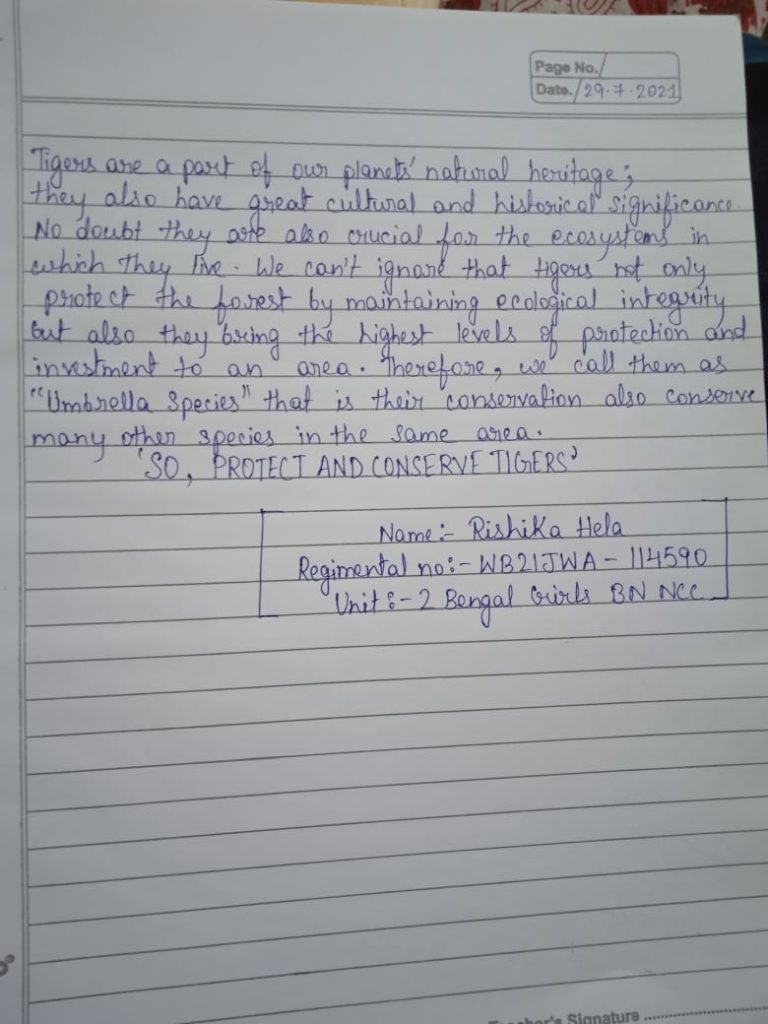 Page No.
Date. 29.7.2021
Tigers are a part of our planets' natural heritage;
they also have great cultural and historical significance.
No doubt they are also crucial for the ecosystems in
which they live. We can't ignore that tigers not only
protect the forest by maintaining ecological integrity
but also they bring the highest levels of protection and
investment to an area. Therefore, we call them as
"Umbrella Species" that is their conservation also conserve
many other species in the same area.
'SO, PROTECT AND CONSERVE TIGERS'
Name:- Rishika Hela
Regimental no:- WB21JWA - 114590
Unit:- 2 Bengal Girls BN NCC
Signature